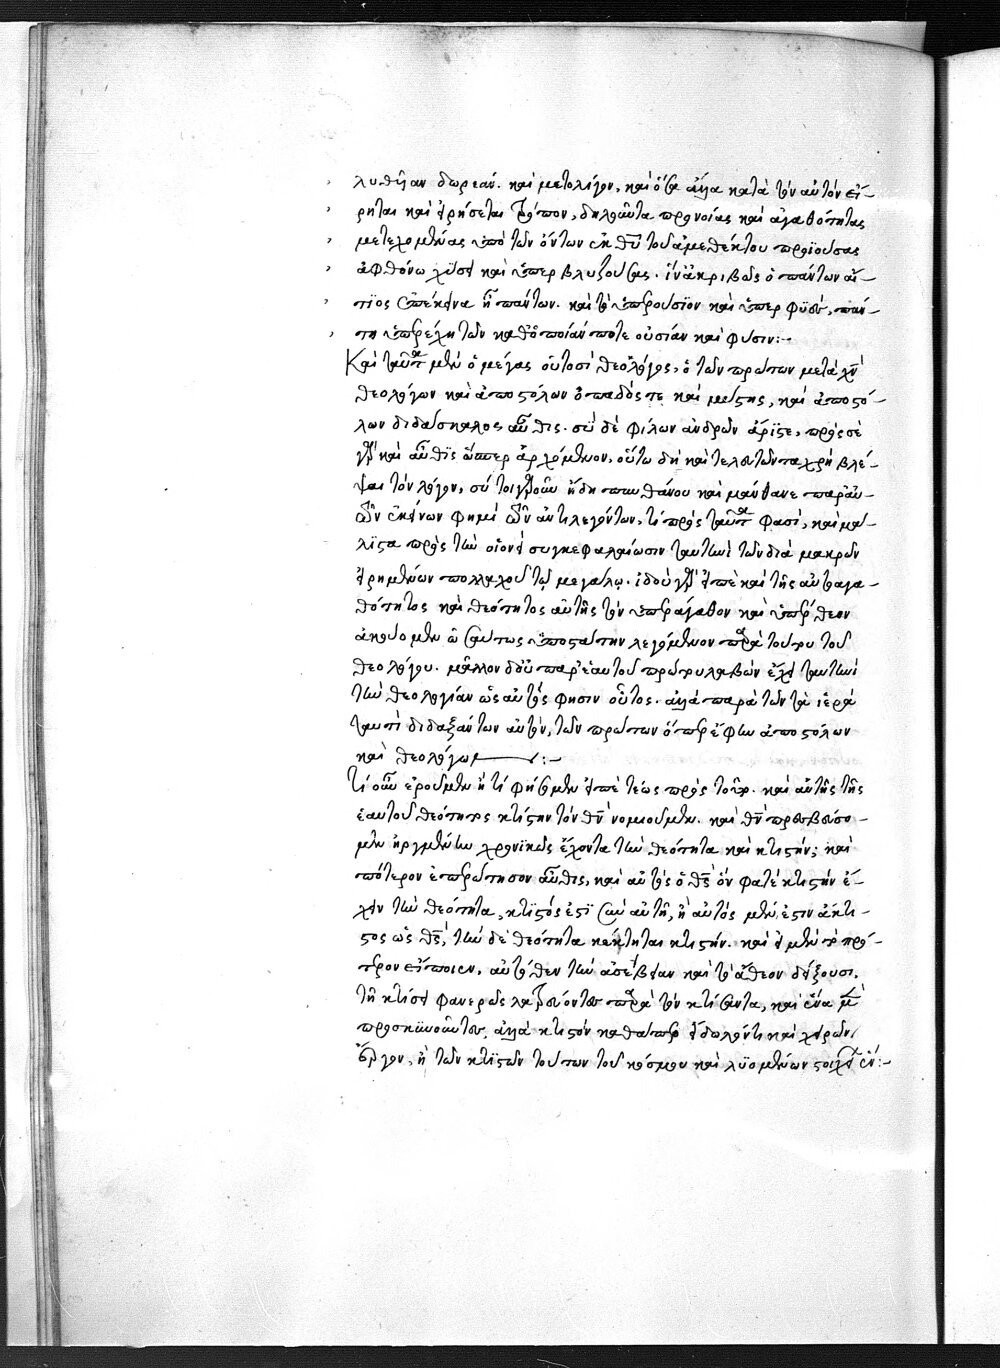 λυθεῖσαν δωρεάν. καὶ μετολίγον, καὶ ὅσα ἄλλα κατὰ τὸν αὐτὸν εἴ-
ρηται καὶ εἰρήσεται τρόπον, δηλοῦντα προνοίας καὶ ἀγαθότητας
μετεχομένας ὑπὸ τῶν ὄντων ἐκ θεοῦ τοῦ ἀμεθέκτου προϊούσας
ἀφθόνω χύσει καὶ ὑπερβλυζούσας. ἵν' ἀκριβῶς ὁ πάντων αἴ-
τιος ἐπέκεινα ᾖ πάντων. καὶ τὸ ὑπερούσιον καὶ ὑπὲρ φύσιν, πάν-
τη ὑπερέχη τῶν καθ' ὁποίαν ποτε οὐσίαν καὶ φύσιν:-
Καὶ ταῦτα μὲν ὁ μέγας οὑτοσὶ θεολόγος, ὁ τῶν πρώτων μετὰ χριστὸν
θεολόγων καὶ ἀποστόλων ὀπαδός τε καὶ μύστης, καὶ ἀποστό-
λων διδάσκαλος αὖθις. σὺ δὲ φίλων ἀνδρῶν ἄριστε, πρὸς σὲ
γὰρ καὶ αὖθις ὥσπερ ἀρχόμενον, οὕτω δὴ καὶ τελευτῶντα χρὴ βλέ-
ψαι τὸν λόγον, σύ τοιγαροῦν ἤδη πυνθάνου καὶ μάνθανε παρ' αὐ-
τῶν ἐκείνων φημὶ τῶν ἀντιλεγόντων, τί πρὸς ταῦτα φασί, καὶ μά-
λιστα πρὸς τὴν οἱονεὶ συγκεφαλαίωσιν ταυτηνὶ τῶν διὰ μακρῶν
εἰρημένων πολλαχοῦ τῷ μεγάλῳ. ἰδοὺ γὰρ εἶπε καὶ τῆς αὐταγα-
θότητος καὶ θεότητος αὐτῆς τὸν ὑπεράγαθον καὶ ὑπέρθεον
ἀκούομεν ὡσαύτως ὑποστάτην λεγόμενον παρὰ τούτου τοῦ
θεολόγου. μᾶλλον δὲ οὐ παρ' ἑαυτοῦ πρώτου λαβὼν ἔχει ταυτηνὶ
τὴν θεολογίαν ὡς αὐτός φησιν οὗτος. ἀλλὰ παρὰ τῶν τὰ ἱερὰ
ταυτὶ διδαξάντων αὐτόν, τῶν πρώτων ὅπερ ἔφην ἀποστόλων
καὶ θεολόγων :-
τί οὖν ἐροῦμεν ἢ τί φήσομεν εἰπέ τέως πρὸς τοῦτο. καὶ αὐτῆς τῆς
ἑαυτοῦ θεότητος κτίστην τὸν θεὸν νομιοῦμεν. καὶ θεὸν πρεσβεύσο-
μεν ἠργμένην χρονικῶς ἔχοντα τὴν θεότητα καὶ κτιστήν; καὶ
πότερον ἐπερώτησον αὖθις, καὶ αὐτὸς ὁ θεὸς ὃν φατὲ κτιστὴν ἔ-
χειν τὴν θεότητα, κτιστός ἐστι σὺν αὐτῇ, ἢ αὐτὸς μέν ἐστιν ἄκτι-
στος ὡς θεός, τὴν δὲ θεότητα κέκτηται κτιστήν. καὶ εἰ μὲν τὸ πρό-
τερον εἴποιεν, αὐτόθεν τὴν ἀσέβειαν καὶ τὸ ἄθεον δείξουσι,
τῇ κτίσει φανερῶς λατρεύοντες παρὰ τὸν κτίσαντα, καὶ ἕνα μὲν
προσκυνοῦντες, ἀλλὰ κτιστὸν καθάπερ εἴδωλόν τι καὶ χειρῶν
ἔργον, ἢ τῶν κτιστῶν τούτων τοῦ κόσμου καὶ λυομένων στοιχείων ἕν:-